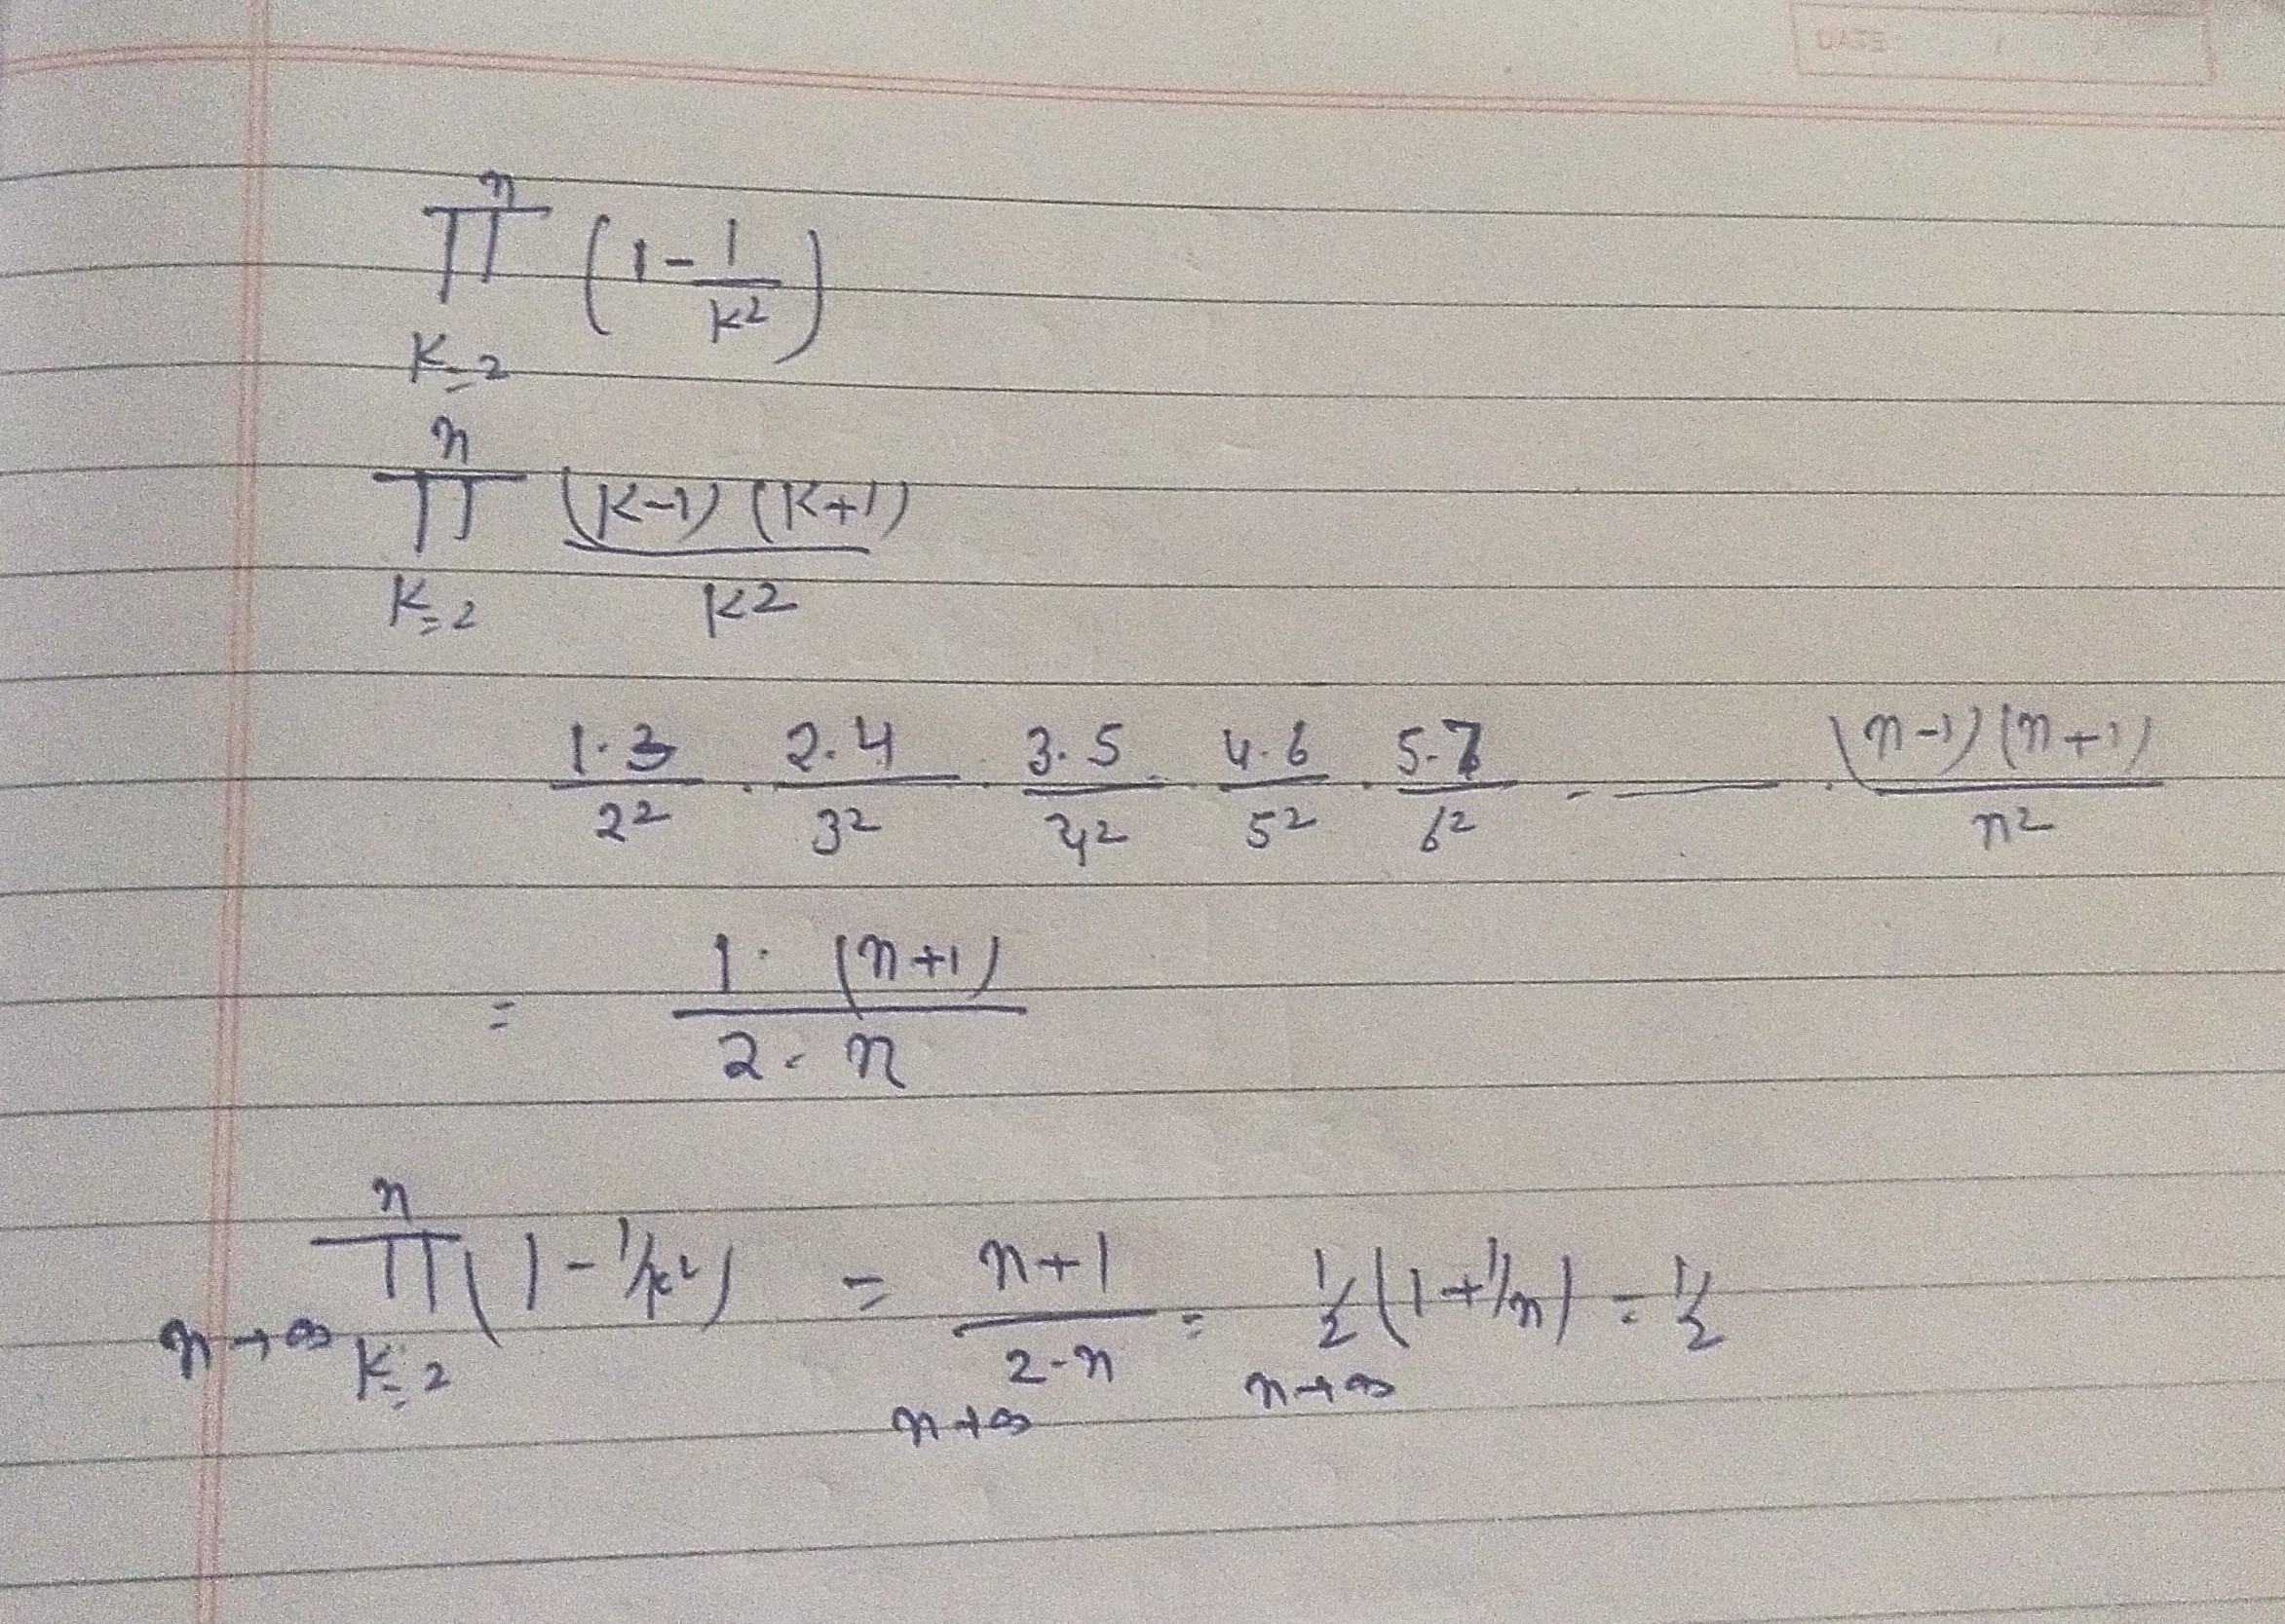 DATE :    /    /
n
∏ (1 - 1/k²)
K=2
n
∏ (K-1) (K+1) / k²
K=2
1·3/2² · 2·4/3² · 3·5/4² · 4·6/5² · 5·7/6² · — · (n-1)(n+1)/n²
= 1· (n+1) / 2· n
n
n→∞ ∏ (1 - 1/k²) = n+1 / 2·n = 1/2 (1 + 1/n) = 1/2
K=2 n→∞ n→∞